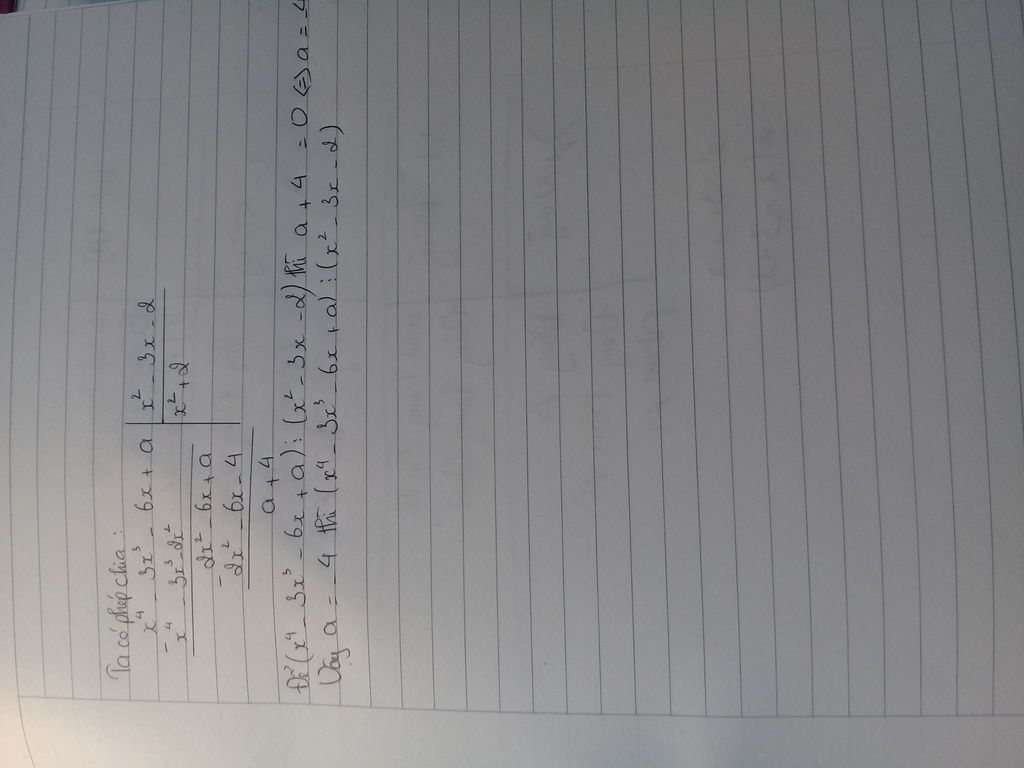 Ta có phép chia:
x⁴ - 3x³ - 6x + a | x² - 3x - 2
- x⁴ - 3x³ 2x² | x² + 2
2x² - 6x + a
- 2x² - 6x - 4
a + 4
Để (x⁴ - 3x³ - 6x + a) : (x² - 3x - 2) thì a + 4 = 0 <=> a = -4
Vậy a = -4 thì (x⁴ - 3x³ - 6x + a) : (x² - 3x - 2)